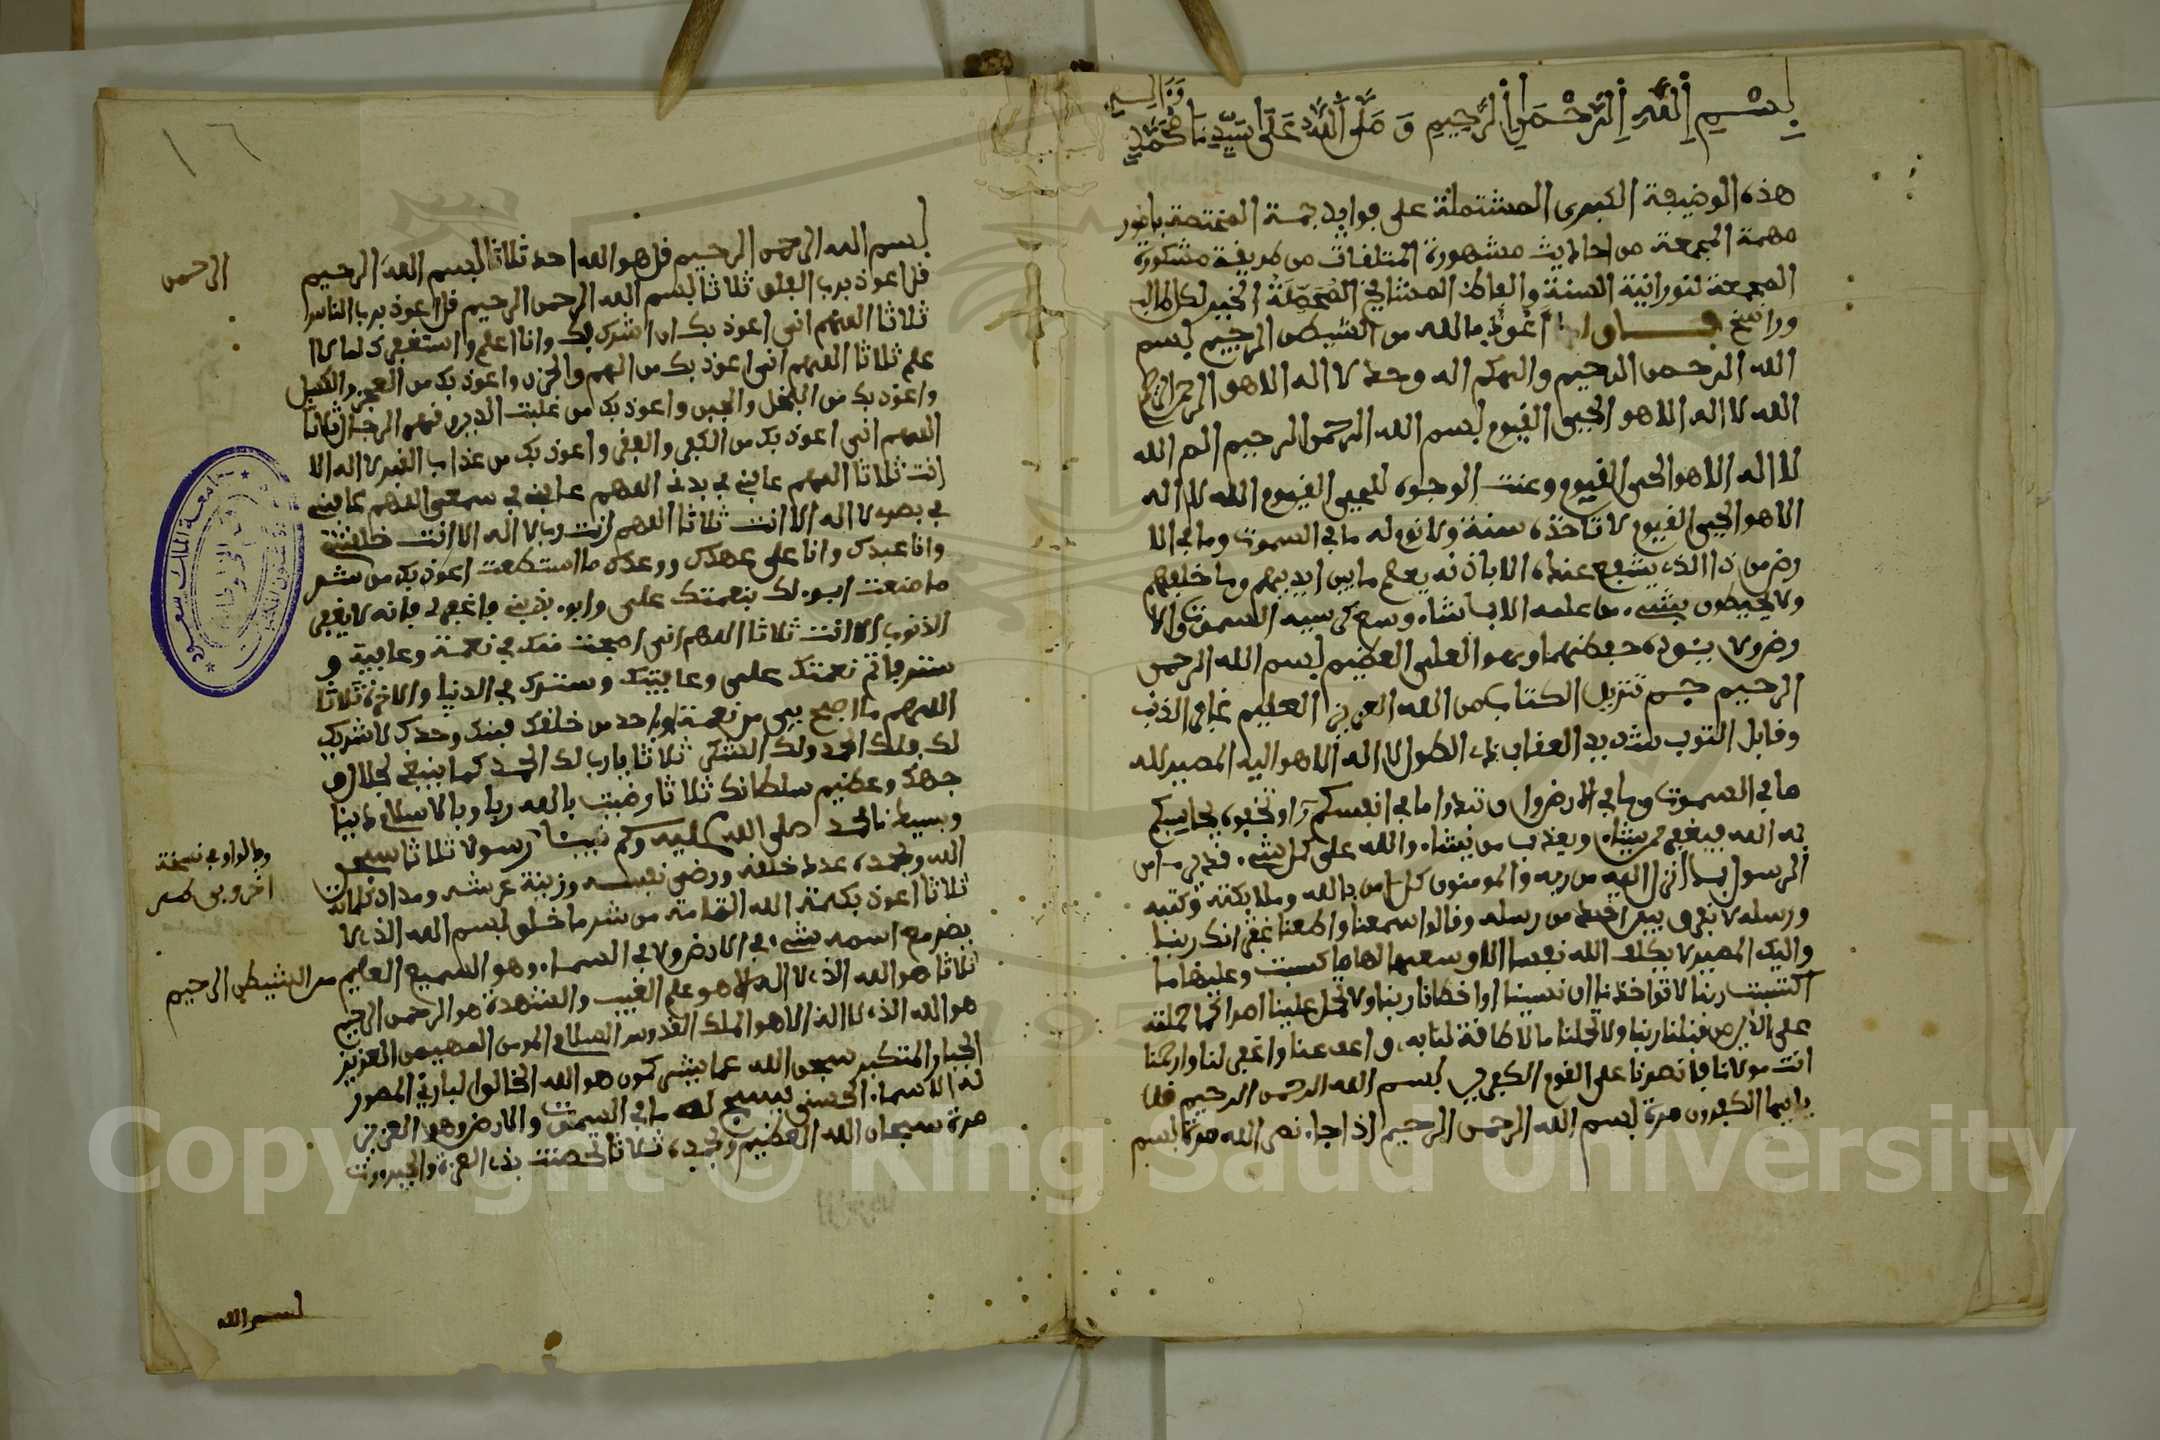 بسم الله الرحمن الرحيم و صلى الله على سيدنا محمد
وءاله
هذه الوضيفة الكبرى المشتملة على فوايد جمة المختصة بامور
مهمة المجمعة من احاديث مشهورة المتلفات من طريفة مشكورة
المجمعة لنورانية السنة والعاطف المثاني المحصلة الخير لكل طالب
وراسخ اعوذ بالله من الشيطن الرجيم بسم
الله الرحمن الرحيم والهكم اله وحد لا اله الا هو الرحمن الرحيم
الله لا اله الا هو الحي القيوم بسم الله الرحمن الرحيم الم الله
لا اله الا هو الحي القيوم وعنت الوجوه للحي القيوم الله لا اله
الا هو الحي القيوم لا تاخذه سنة ولا نوم له ما في السموت وما في الا
رض من ذا الذي يشفع عنده الا باذنه يعلم ما بين ايديهم وما خلفهم
ولا يحيطون بشيء من علمه الا بما شاء وسع كرسيه السموت والا
رض ولا يئوده حفظهما وهو العلي العظيم بسم الله الرحمن
الرحيم حم تنزيل الكتاب من الله العزيز العليم غافر الذنب
وقابل التوب شديد العقاب ذي الطول لا اله الا هو اليه المصير لله
ما في السموت وما في الارض وان تبدوا ما في انفسكم او تخفوه يحاسبكم
به الله فيغفر لمن يشاء ويعذب من يشاء والله على كل شيء قدير امن
الرسول بما انزل اليه من ربه والمومنون كل امن بالله وملايكته وكتبه
ورسله لا نفرق بين احد من رسله وقالوا سمعنا واطعنا غفرانك ربنا
واليك المصير لا يكلف الله نفسا الا وسعها لها ما كسبت وعليها ما
اكتسبت ربنا لا تواخذنا ان نسينا او اخطانا ربنا ولا تحمل علينا اصرا كما حملته
على الذين من قبلنا ربنا ولا تحملنا ما لا طافة لنا به واعف عنا واغفر لنا وارحمنا
انت مولانا فانصرنا على القوم الكفرين بسم الله الرحمن الرحيم قل
يايها الكفرون مرة بسم الله الرحمن الرحيم اذا جاء نصر الله مرة بسم
بسم الله الرحمن الرحيم قل هو الله احد ثلاثا بسم الله الرحيم
الرحمن
قل اعوذ برب الفلق ثلاثا بسم الله الرحمن الرحيم قل اعوذ برب الناس
ثلاثا اللهم اني اعوذ بك ان اشرك بك وانا اعلم واستغفرك لما لا
علم ثلاثا اللهم اني اعوذ بك من الهم والحزن واعوذ بك من العجز والكسل
واعوذ بك من البخل والجبن واعوذ بك من غلبت الدين وقهر الرجال ثلاثا
اللهم اني اعوذ بك من الكفر والفقر واعوذ بك من عذاب القبر لا اله الا
انت ثلاثا اللهم عافني في بدني اللهم عافني في سمعي اللهم عافني
في بصري لا اله الا انت ثلاثا اللهم انت رب لا اله الا انت خلقتني
وانا عبدك وانا على عهدك ووعدك ما استطعت اعوذ بك من شر
ما صنعت ابوء لك بنعمتك علي وابوء بذنبي فاغفر لي فانه لا يغفر
الذنوب الا انت ثلاثا اللهم اني اصبحت منك في نعمة وعافية و
ستر فاتم نعمتك علي وعافيتك وسترك في الدنيا والاخرة ثلاثا
اللهم ما اصبح بي من نعمة او باحد من خلقك فمنك وحدك لا شريك
لك فلك الحمد ولك الشكر ثلاثا يا رب لك الحمد كما ينبغي لجلال و
جهك وعظيم سلطانك ثلاثا رضيت بالله ربا وبالاسلام دينا
وبسيدنا محمد صلى الله عليه وسلم نبيئا رسولا ثلاثا سبحن
الله وبحمده عدد خلقه ورضى نفسه وزينة عرشه ومداد كلماته
ثلاثا اعوذ بكلمة الله التامة من شر ما خلق بسم الله الذي لا
يضر مع اسمه شيء في الارض ولا في السماء وهو السميع العليم من الشيطن الرجيم
ثلاثا هو الله الذي لا اله الا هو علم الغيب والشهدة هو الرحمن الرحيم
هو الله الذي لا اله الا هو الملك القدوس السلام المومن المهيمن العزيز
الجبار المتكبر سبحن الله عما يشركون هو الله الخالق البارئ المصور
له الاسماء الحسنى يسبح له ما في السموت والارض وهو العزيز
مرة سبحان الله العظيم وبحمده ثلاثا تحصنت بذي العزة والجبروت
بسم الله
جامعة الملك سعود
Copyright © King Saud University